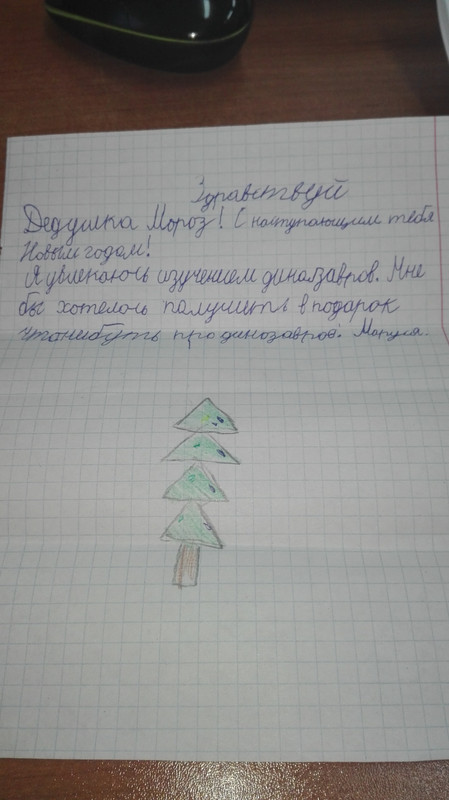 Здравствуй
Дедушка Мороз! С наступающим тебя
Новым годом!
Я увлекаюсь изучением диназавров. Мне
бы хотелось палучить в подарок
чтонибуть про динозавров. Маруся.